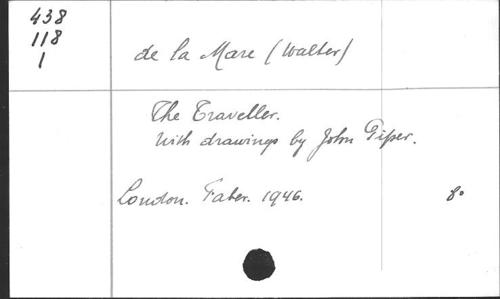 438
118
1
de la Mare (Walter)
The Traveller.
With drawings by John Piper.
London. Faber. 1946. 8º